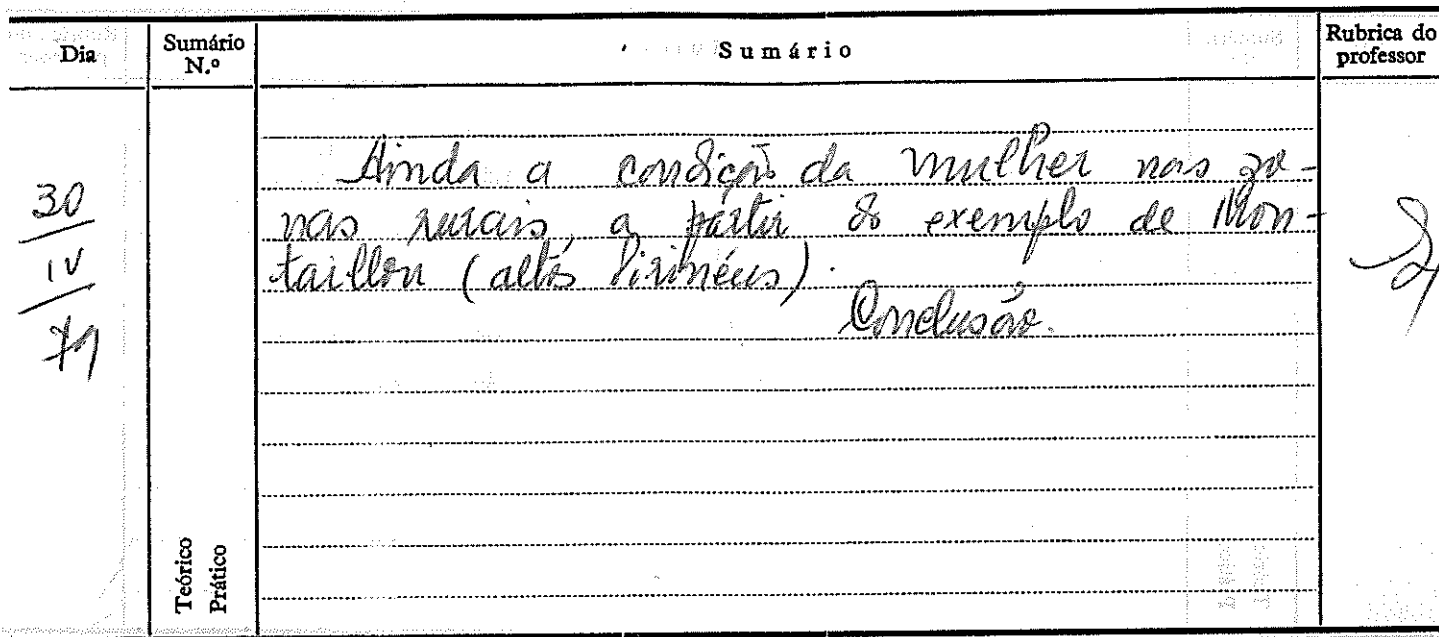 Dia
Sumário N.º
Sumário
Rubrica do professor
30
IV
79
Ainda a condição da mulher nas zo-
nas rurais, a partir do exemplo de Mon-
taillou (altos Pirinéus).
Conclusão.
Teórico
Prático